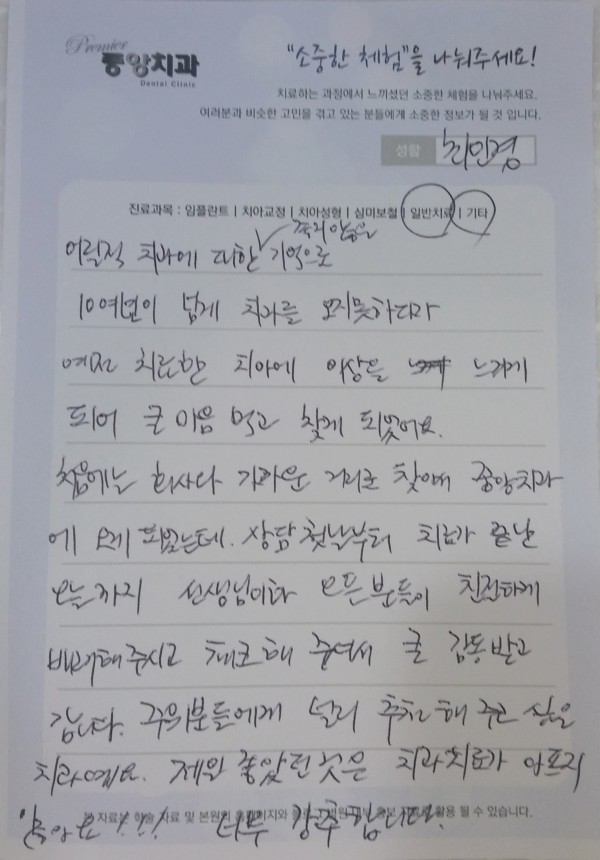 Premier
중앙치과
Dental Clinic
"소중한 체험"을 나눠주세요!
치료하는 과정에서 느끼셨던 소중한 체험을 나눠주세요.
여러분과 비슷한 고민을 겪고 있는 분들에게 소중한 정보가 될 것 입니다.
성함 최민경
진료과목 : 임플란트 | 치아교정 | 치아성형 | 심미보철 | 일반치료 | 기타
좋지않은
어릴적 치과에 대한 기억으로
10여년이 넘게 치과를 오지못하다가
예전 치료한 치아에 이상을 느끼게
되어 큰 마음 먹고 찾게 되었어요.
처음에는 회사와 가까운 거리로 찾아 중앙치과
에 오게 되었는데. 상담 첫날부터 치료가 끝난
오늘까지 선생님이하 모든분들이 친절하게
배려해주시고 체크해 주셔서 큰 감동받고
갑니다. 주위분들에게 널리 추천해 주고 싶은
치과예요. 제일 좋았던것은 치과치료가 아프지
않아요!!! 너무 강추합니다.
본 자료는 학술 자료 및 본원의 홈페이지와 활용 될 수 있습니다.